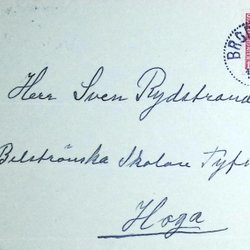 BRÖ
Herr Sven Rydstrand
Belströnska Skolan Tyf
Hoga